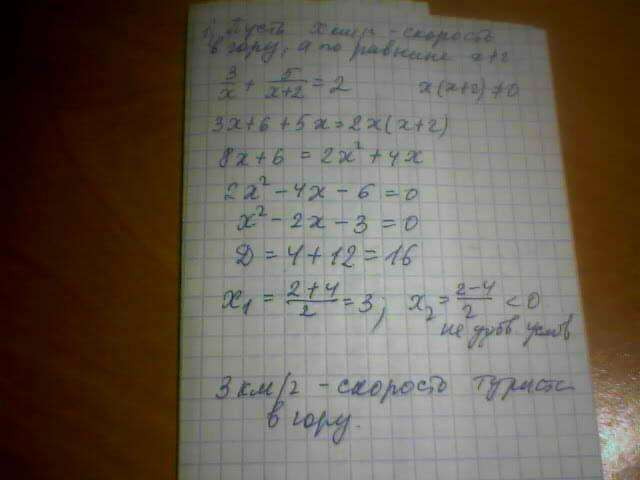 1) Пусть x км/ч - скорость
в гору, а по равнине x+2
3/x + 5/(x+2) = 2 x(x+2)≠0
3x+6+5x=2x(x+2)
8x+6 = 2x²+4x
2x²-4x-6=0
x²-2x-3=0
D=4+12=16
x₁ = (2+4)/2 = 3; x₂ = (2-4)/2 < 0
не удов. услов
3 км/ч - скорость туриста
в гору.